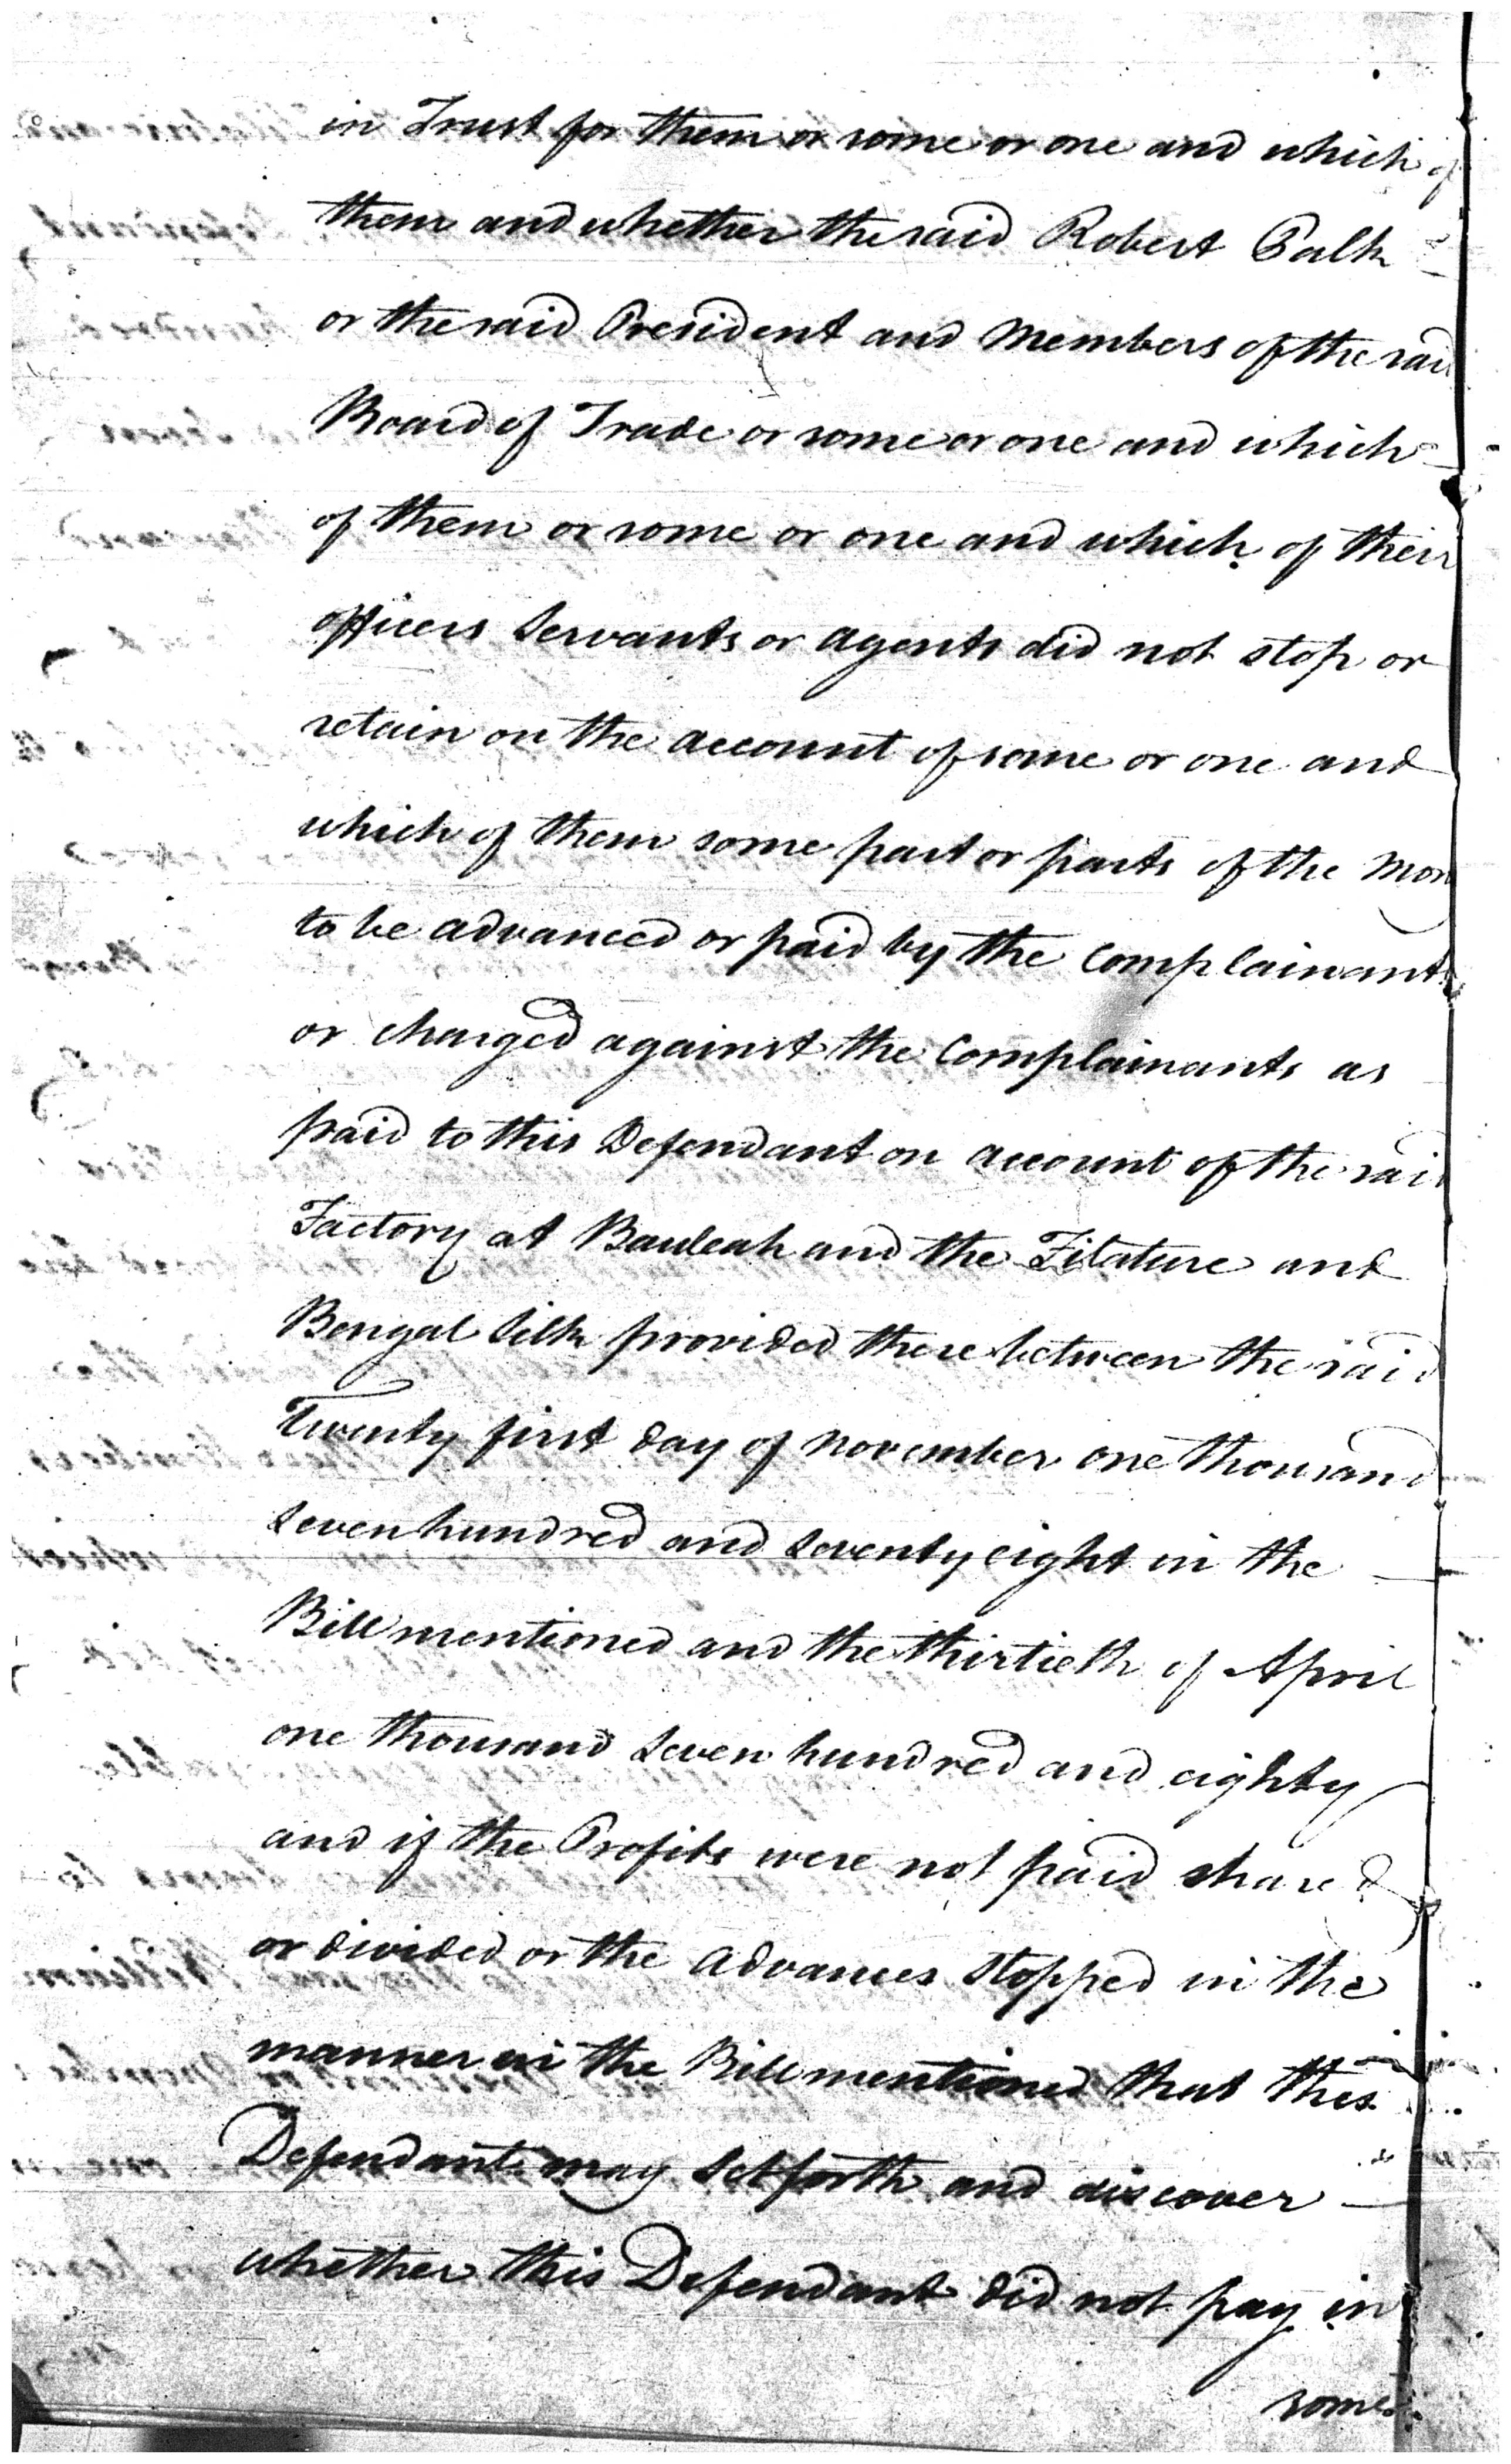 in Trust for them or some or one and which of
them and whether the said Robert Palk
or the said President and Members of the said
Board of Trade or some or one and which
of them or some or one and which of their
officers Servants or agents did not stop or
retain on the account of some or one and
which of them some part or parts of the Mon
to be advanced or paid by the Complainants
or charged against the Complainants as
paid to this Defendant on account of the said
Factory at Bauleah and the Filature and
Bengal Silk provided there between the said
Twenty first day of November one thousand
Seven hundred and Seventy eight in the
Bill mentioned and the thirtieth of April
one thousand Seven hundred and eighty
and if the Profits were not paid shared
or divided or the advances stopped in the
manner in the Bill mentioned that this
Defendant may set forth and discover
whether this Defendant did not pay in
some